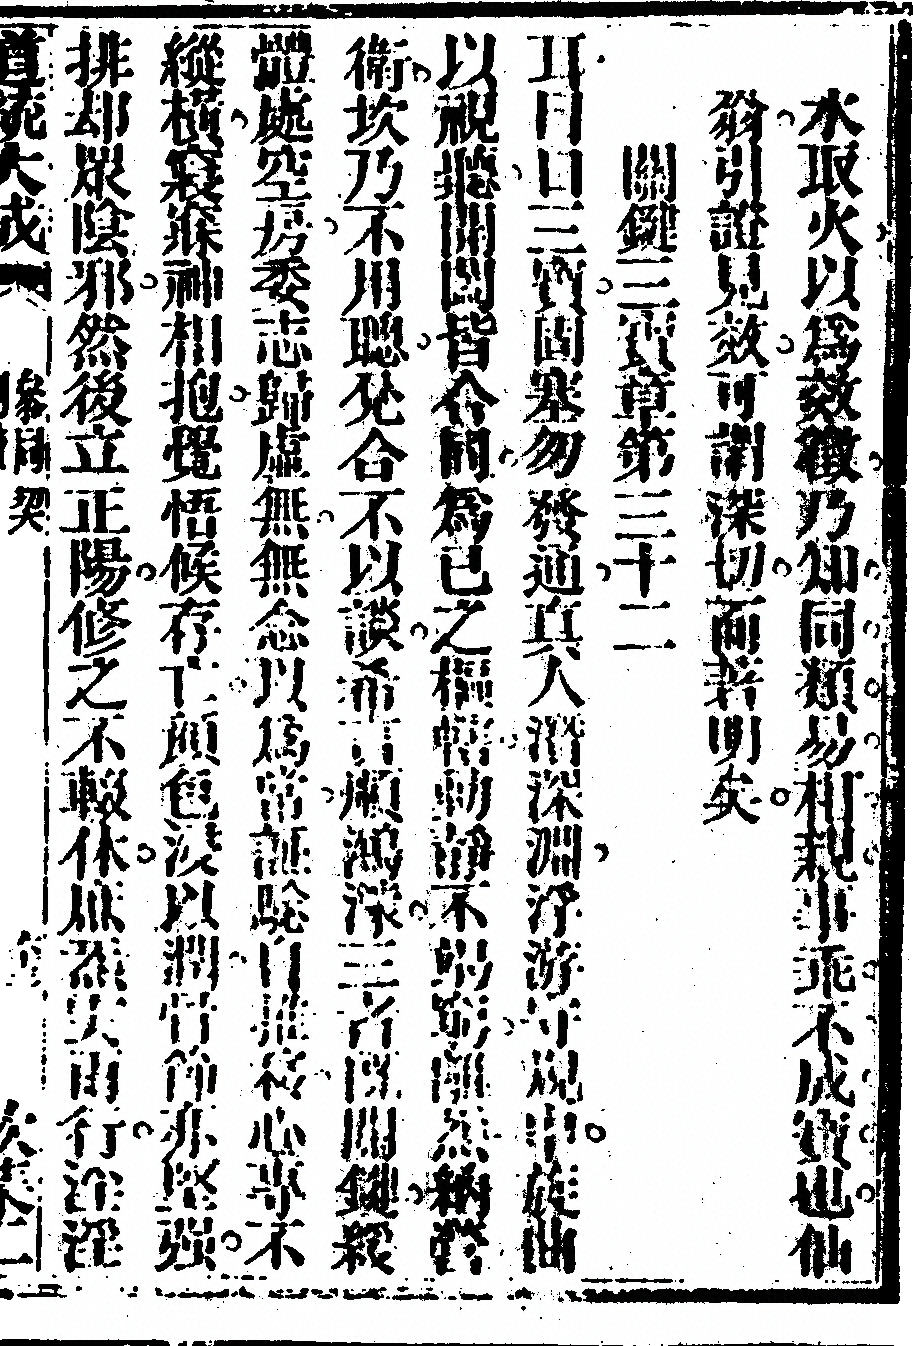 水取火以為效徵乃知同類易相親事乖不成寶也仙
翁引證見效可謂深切而著明矣
關鍵三寶章第三十二
耳目口三寶固塞勿發通真人潛深淵浮游守規中旋曲
以視聽開闔皆合同為己之樞轄動靜不竭窮離炁納營
衛坎乃不用聰兌合不以談希言順鴻濛三者既關鍵緩
體處空房委志歸虛無無念以為常證驗自推移心專不
縱橫寢寐神相抱覺悟候存亡顏色浸以潤骨節亦堅强
排却眾陰邪然後立正陽修之不輟休庶炁雲雨行淫淫
道統大成
參同契